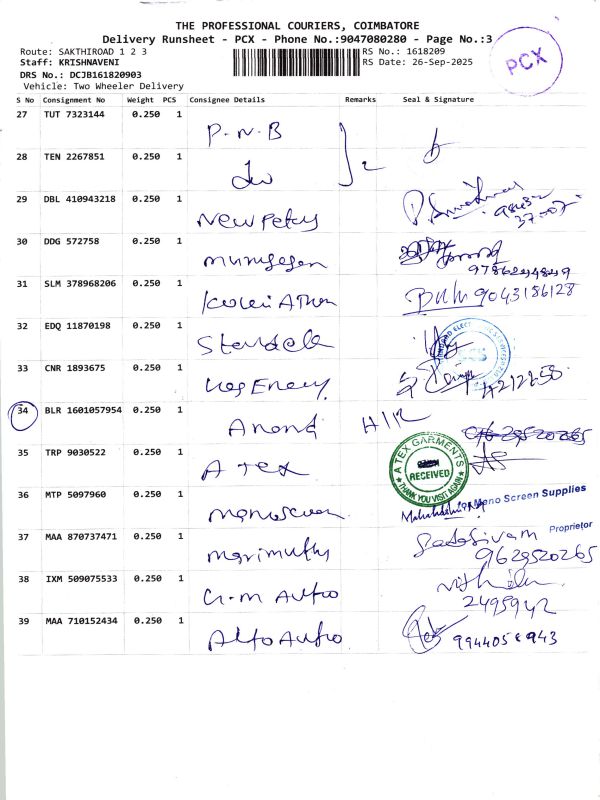 THE PROFESSIONAL COURIERS, COIMBATORE
Delivery Runsheet - PCX - Phone No.:9047080280 - Page No.:3
Route: SAKTHIROAD 1 2 3 RS No.: 1618209
Staff: KRISHNAVENI RS Date: 26-Sep-2025
PCX
DRS No.: DCJB161820903
Vehicle: Two Wheeler Delivery
S No Consignment No Weight PCS Consignee Details Remarks Seal & Signature
27 TUT 7323144 0.250 1 P.N.B
28 TEN 2267851 0.250 1 2
29 DBL 410943218 0.250 1 New Petals
30 DDG 572758 0.250 1 Murugesan
31 SLM 378968206 0.250 1 9043186128
32 EDQ 11870198 0.250 1
33 CNR 1893675 0.250 1 4212258
34 BLR 1601057954 0.250 1 Anand
35 TRP 9030522 0.250 1 A Tex
A TEX GARMENTS
RECEIVED
THANK YOU VISIT AGAIN
36 MTP 5097960 0.250 1 Mano Screen Supplies
Proprietor
37 MAA 870737471 0.250 1 Marimuthu Sadasivam
9629520265
38 IXM 509075533 0.250 1 G.M Auto
2495942
39 MAA 710152434 0.250 1 Alfo Auto